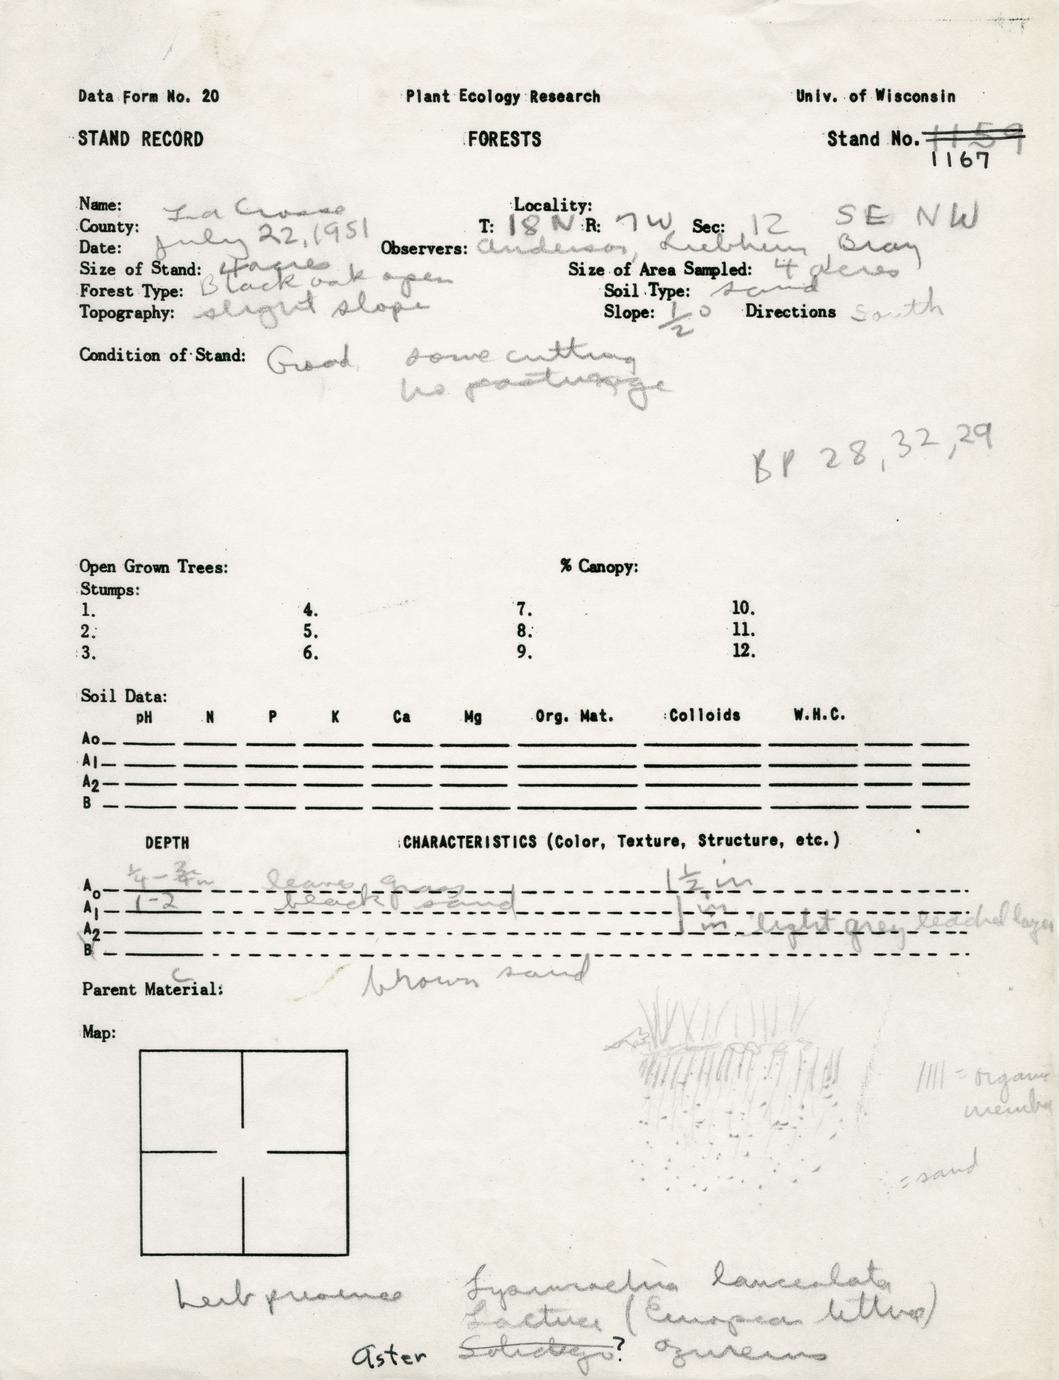 Data Form No. 20 Plant Ecology Research Univ. of Wisconsin
STAND RECORD FORESTS Stand No. 1159
1167
Name: Locality:
County: La Crosse T: 18 N R: 7 W Sec: 12 SE NW
Date: July 22, 1951 Observers: Anderson, Liebherr Bray
Size of Stand: 4 acres Size of Area Sampled: 4 acres
Forest Type: Black oak open Soil Type: sand
Topography: slight slope Slope: 1/2° Directions South
Condition of Stand: Good some cutting
no pasturage
BP 28, 32, 29
Open Grown Trees: % Canopy:
Stumps:
1. 4. 7. 10.
2. 5. 8. 11.
3. 6. 9. 12.
Soil Data:
pH N P K Ca Mg Org. Mat. Colloids W.H.C.
Ao
A1
A2
B
DEPTH CHARACTERISTICS (Color, Texture, Structure, etc.)
Ao 1/4 - 3/4 in leaves grass 1 1/2 in
A1 1-2 black sand 1 in
A2 1 in light grey leached layer
B
C
Parent Material: brown sand
Map:
//// = organic
= sand
herb presence Lysimachia lanceolata
Lactuca (European lettuce)
Aster Solidago? azureus